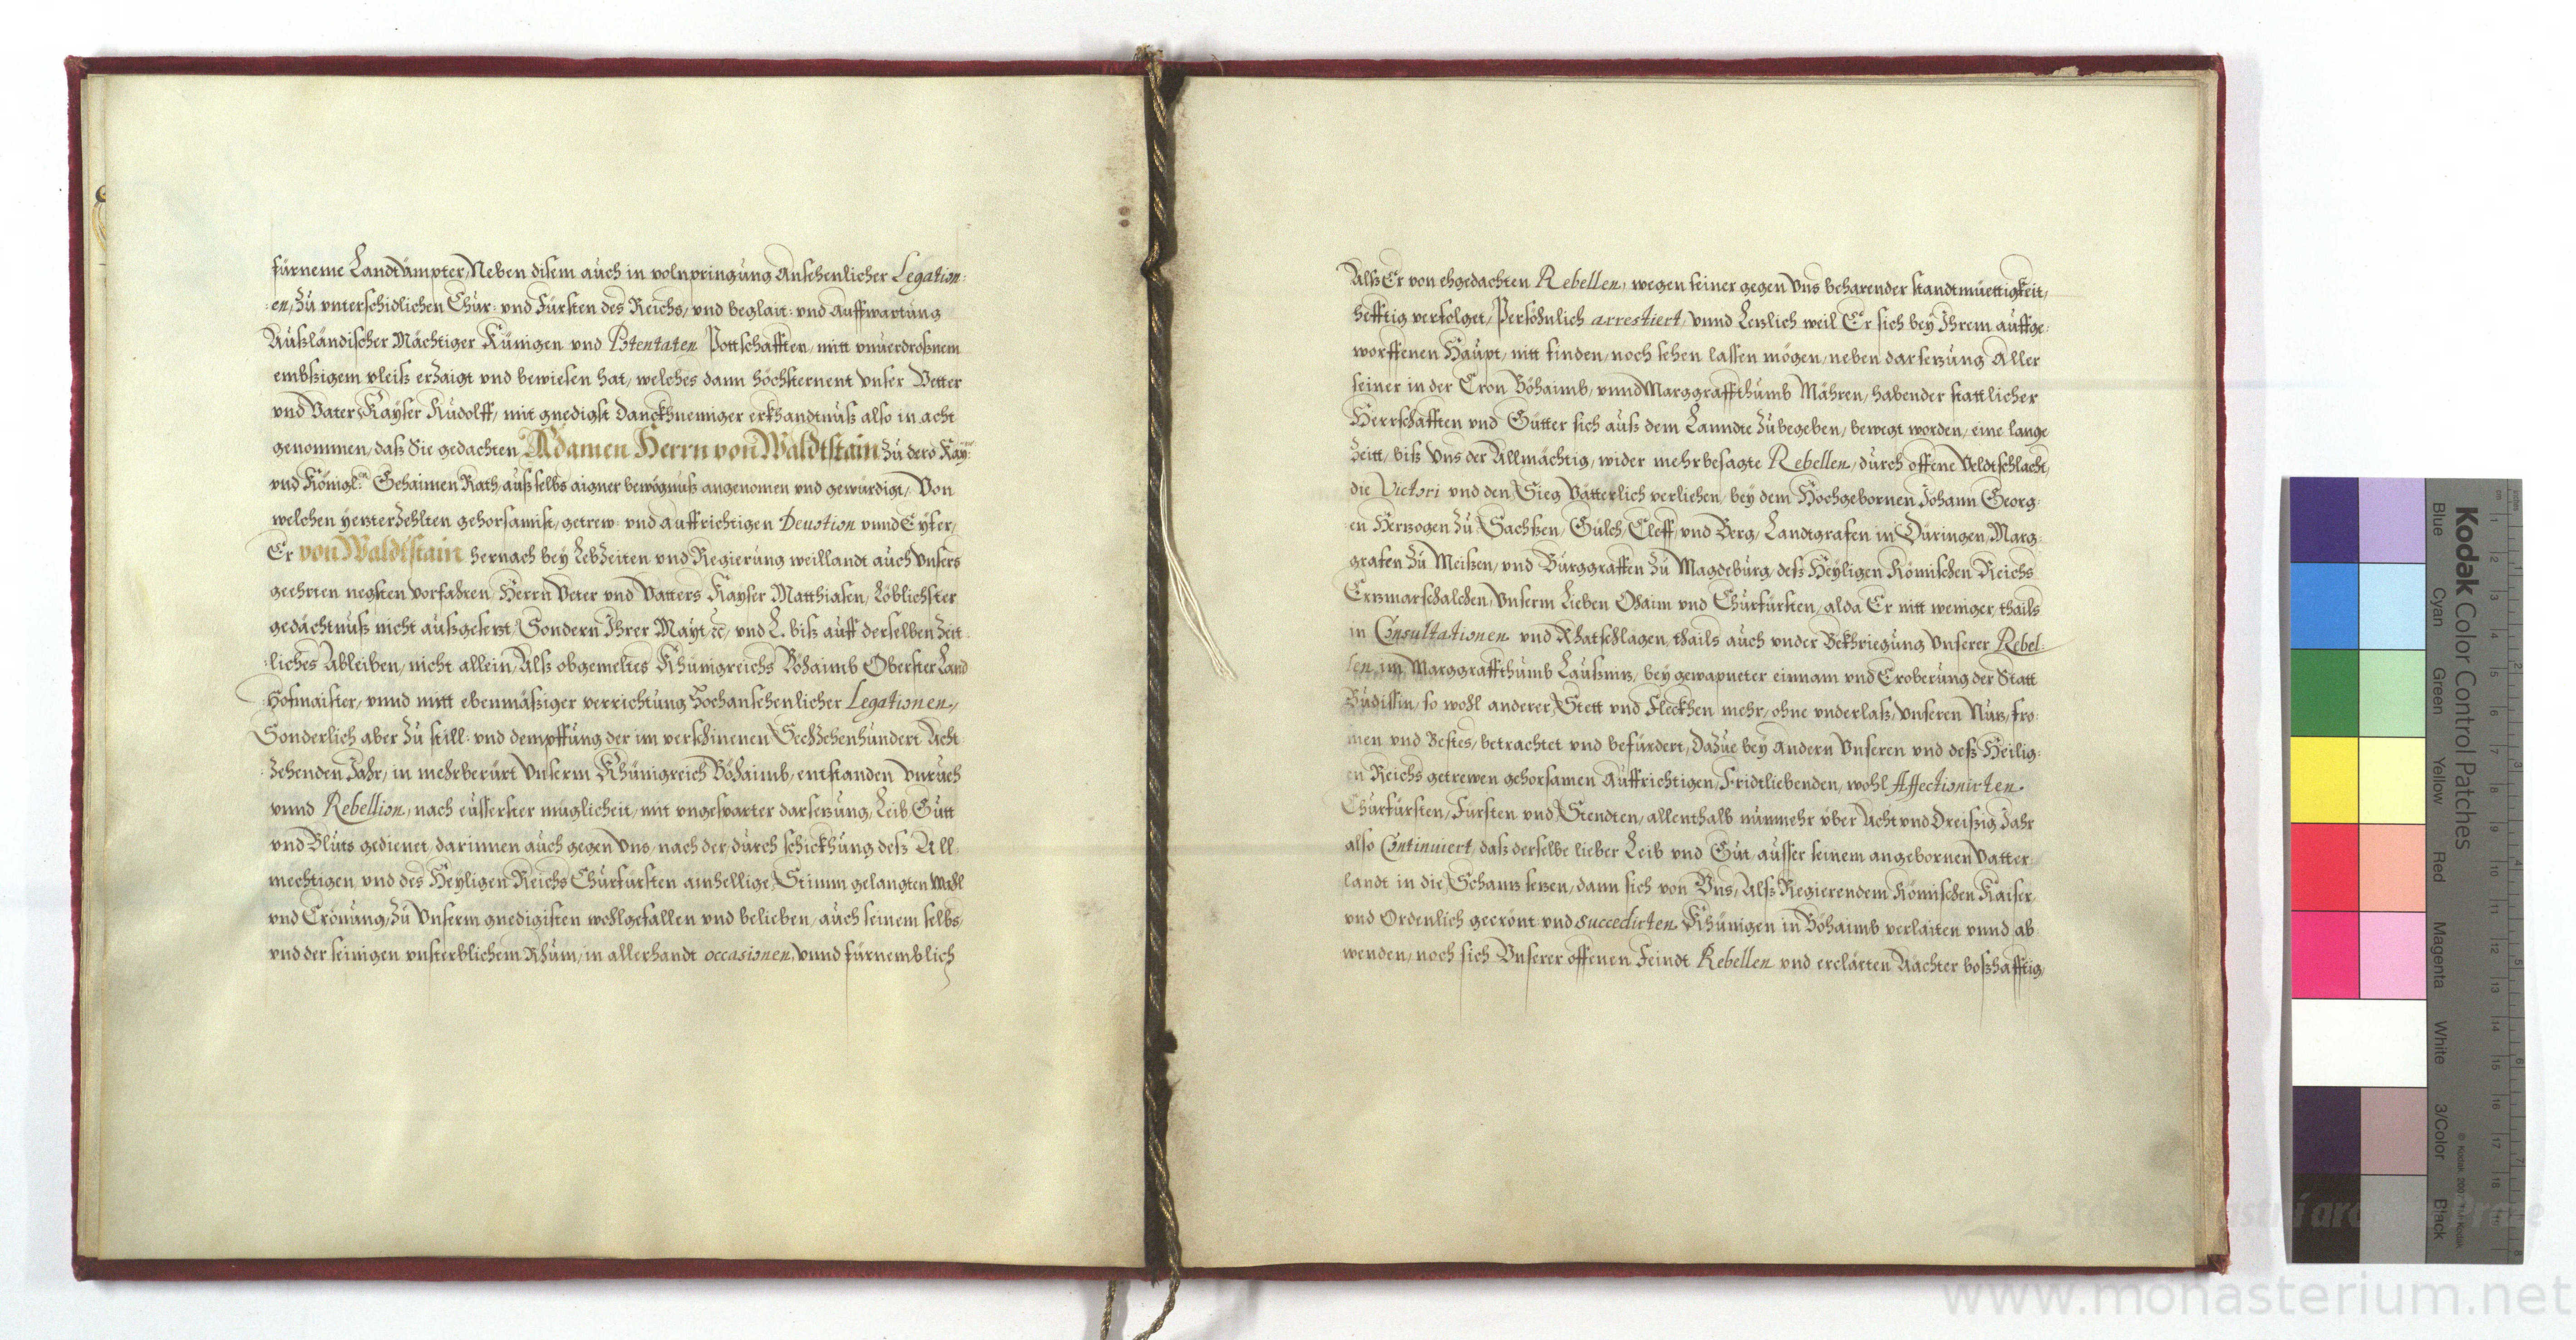 fürneme Landtämpter, Neben disem auch in volnpringung Ansehenlicher Legation:
:en, Zu unterschidlichen Chur: und Fürsten des Reichs, und beglait: und Auffwartung
Außländischer Mächtiger Künigen und Potentaten Pottschafften, mitt unuerdroßnem
embßigem vleiß erzaigt und bewiesen hat, welches dann höchsternent unser Vetter
und Vater Kayser Rudolff, mit gnedigst danckhnemiger erkhandtnuß also in acht
genommen, daß Sie gedachten Adamen Herrn von Waldtstain Zu dero Kay:
und Königl: Gehaimen Rath, auß selbs aigner bewögnuß angenomen und gewürdigt, Von
welchen yezterzehlten gehorsamist, getrew: und auffrichtigen Deuotion unnd Eyfer,
Er von Waldtstain hernach bey Lebzeiten und Regierung weillandt auch Unsers
geehrten negsten Vorfahren, Herrn Veter und Vatters Kayser Matthiasen, Löblichster
gedächtnuß nicht außgesezt, Sondern Ihrer Mayt: ec, und L. biß auff derselben Zeit:
:liches Ableiben, nicht allein, Alß obgemeltes Khünigreichs Böhaimb Oberster Land
Hofmaister, unnd mitt ebenmäßiger verrichtung Hochansehenlicher Legationen,
Sonderlich aber Zu still: und dempffung der im verschinenen Sechzehenhundert Acht
:zehenden Jahr, in mehrberürt Unserm Khünigreich Böhaimb, entstanden Unruch
unnd Rebellion, nach eüsserster müglicheit, mit ungesparter darsezung, Leib Gutt
und Bluts gedienet, darinnen auch gegen Uns, nach der, durch schickhung deß All:
mechtigen, und des Heyligen Reichs Churfürsten ainhellige Stimm gelangten Wahl
und Crönung, Zu Unserm gnedigisten wohlgefallen und belieben, auch seinem selbs,
und der seinigen unsterblichem Rhum, in allerhandt occasionen, unnd fürnemblich
Alß Er von ehgedachten Rebellen, wegen seiner gegen Uns beharender standtmüettigkeit,
hefftig verfolget, Persöhnlich arrestiert, unnd Lezlich weil Er sich bey Ihrem auffge:
worffenen Haupt, nitt finden, noch sehen lassen mögen, neben darsezung Aller
seiner in der Cron Böhaimb, unnd Marggraffthumb Mähren, habender stattlicher
Herrschafften und Gütter sich auß dem Lanndte Zubegeben, bewegt worden, eine lange
Zeitt, biß Uns der Allmächtig, wider mehrbesagte Rebellen, durch offene Veldtschlacht,
die Victori und den Sieg Vätterlich verliehen, bey dem Hochgebornen Johann Georg:
:en Herzogen Zu Sachßen, Gülch, Cleff, und Berg, Landtgrafen in Düringen, Marg:
grafen Zu Meißen, und Burggraffen Zu Magdeburg, deß Heyligen Römischen Reichs
Erzmarschalchen, Unserm Lieben Ohaim und Churfürsten, alda Er nitt weniger, thails
in Consultationen und Rhatschlagen, thails auch under Bekhriegung Unserer Rebel:
len, im Marggraffthumb Laußniz, bey gewapneter einnam und Eroberung der Statt
Budissin, so wohl anderer Stett und Fleckhen mehr, ohne underlaß, Unseren Nuz, fro:
men und Bestes, betrachtet und befürdert, Dazue bey andern Unseren und deß Heilig:
en Reichs getrewen gehorsamen Auffrichtigen, Fridtliebenden, wohl Affectionirten
Churfürsten, Fürsten und Stendten, allenthalb nunmehr über Acht und Dreißig Jahr
also Continuiert, daß derselbe lieber Leib und Gut, ausser seinem angebornen Vatter:
landt in die Schanz sezen, dann sich von Uns, Alß Regierendem Römischen Kaiser,
und Ordenlich gecrönt und succedirten Khünigen in Böhaimb verlaiten unnd ab
wenden, noch sich Unserer offenen Feindt Rebellen und erclärten Aächter boßhafftig,
Kodak Color Control Patches
Blue Cyan Green Yellow Red Magenta White 3/Color Black
www.monasterium.net